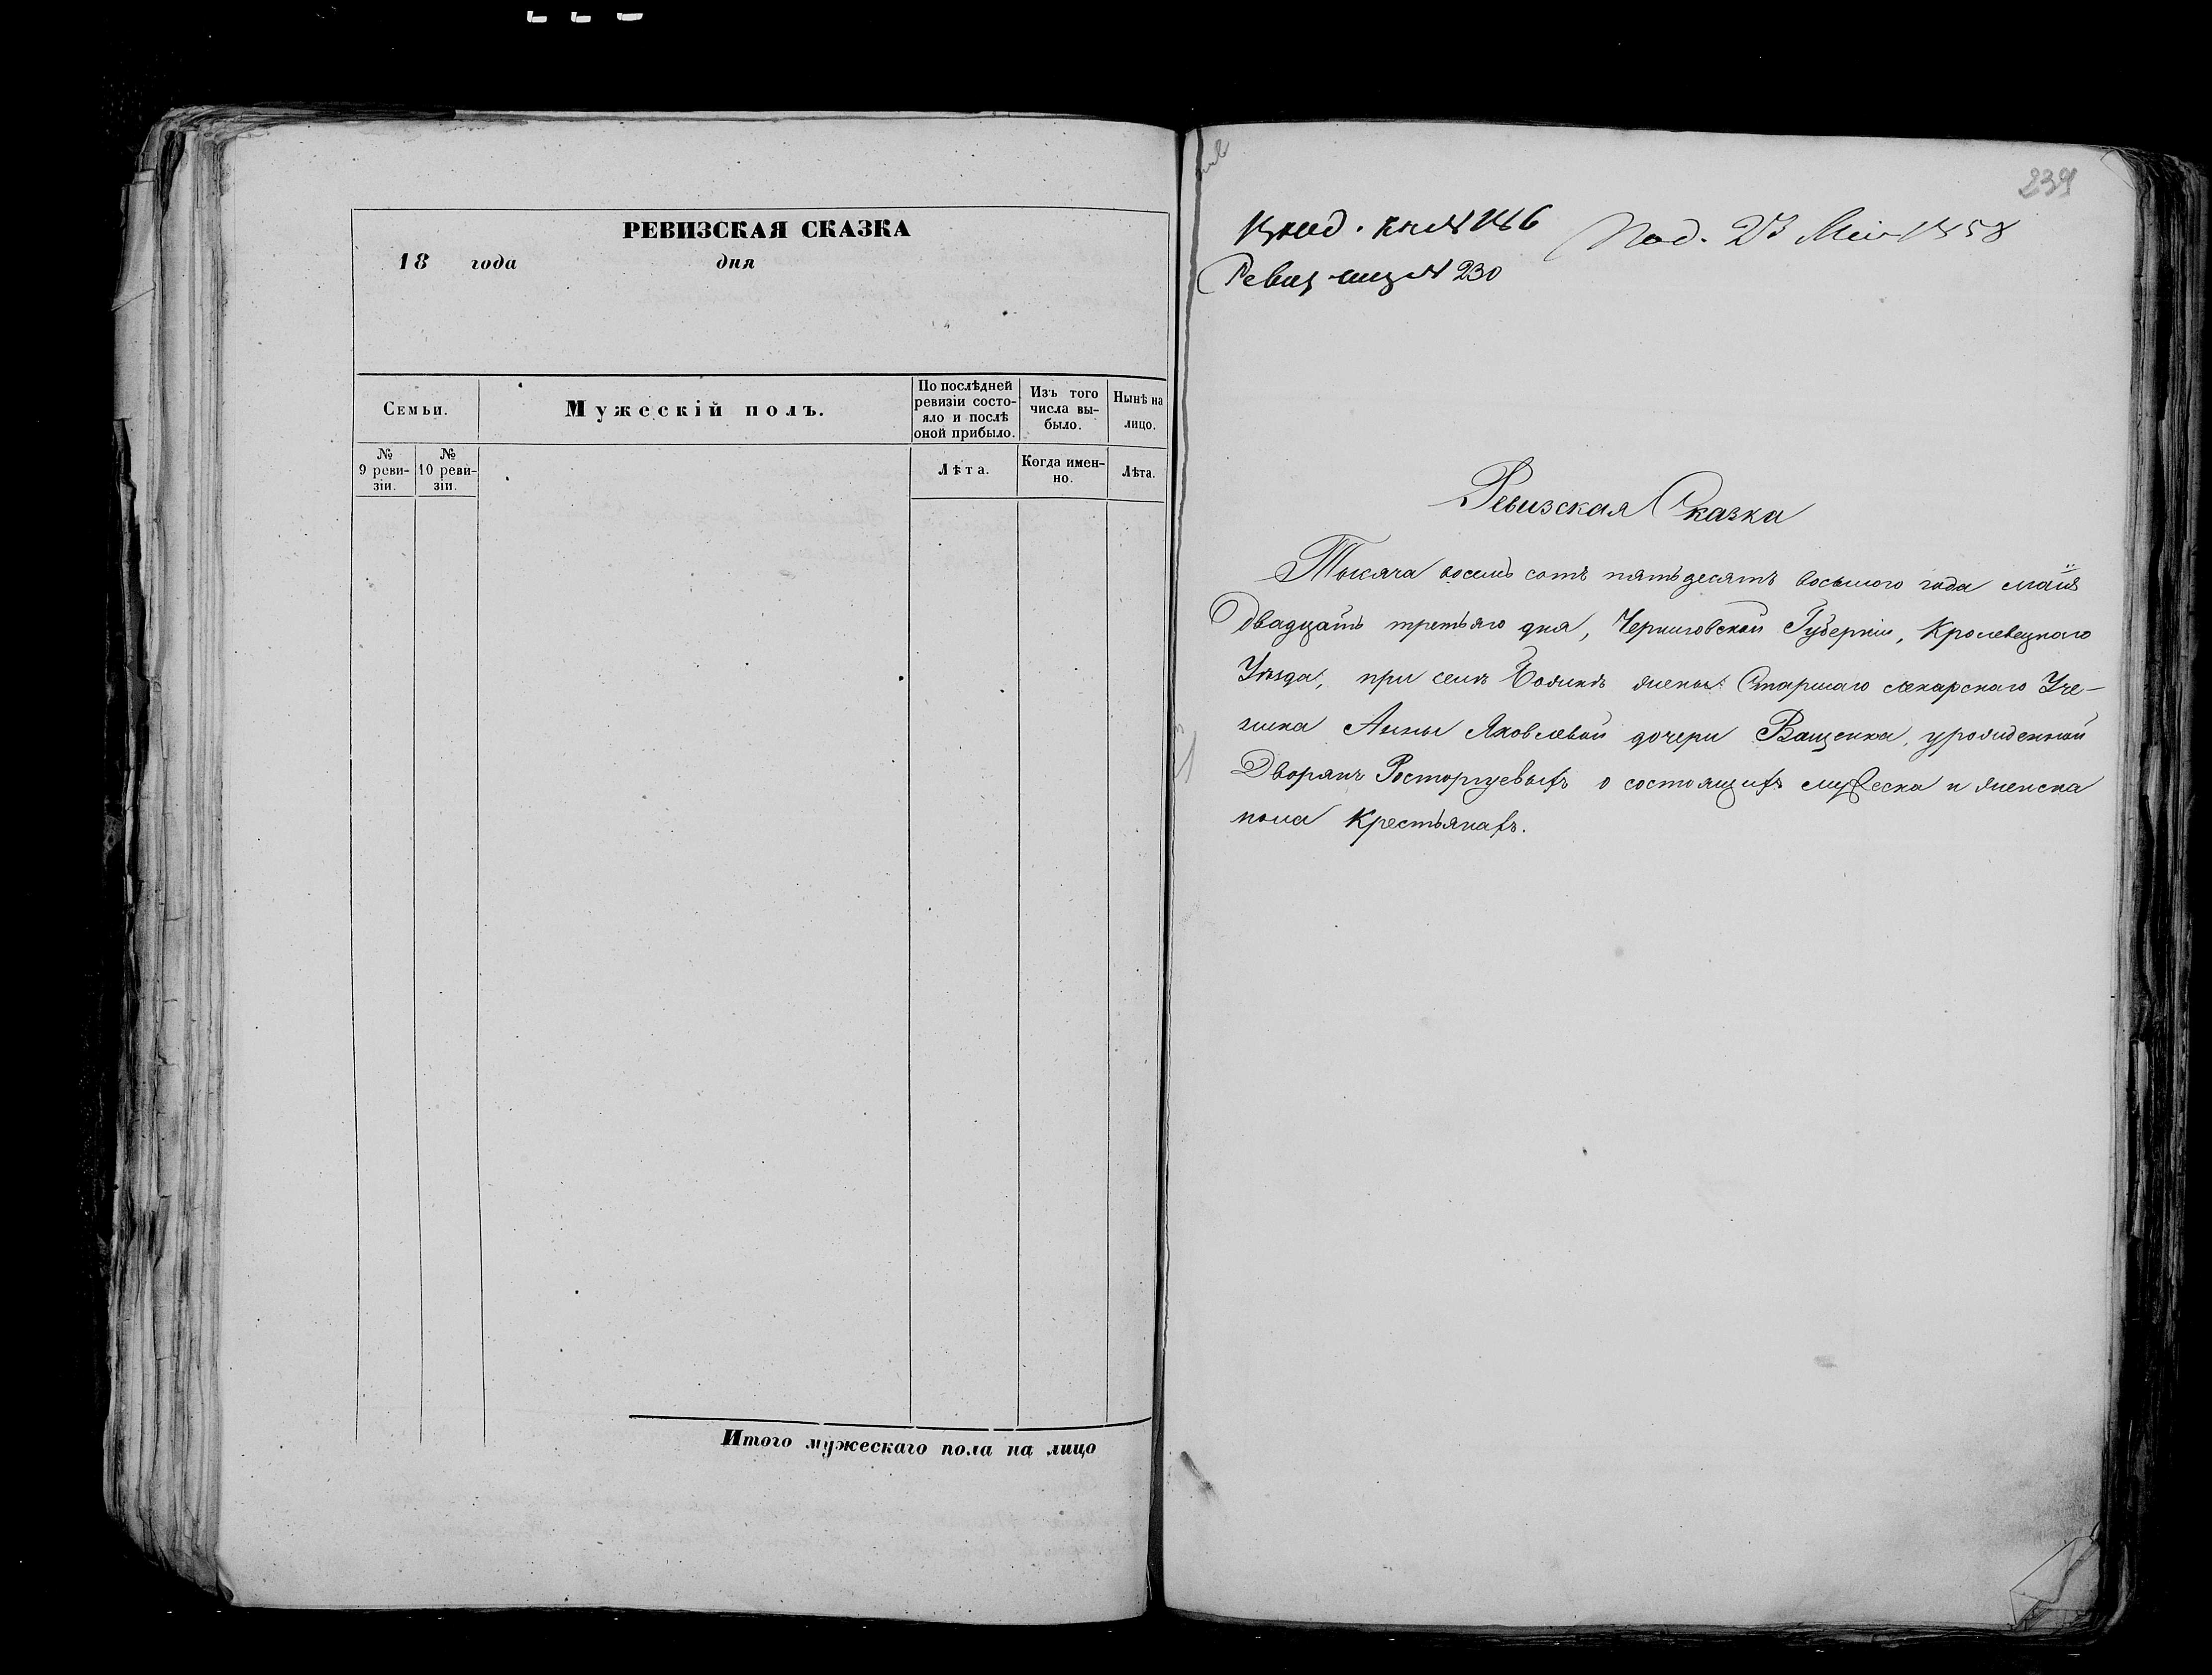 РЕВИЗСКАЯ СКАЗКА
18 года дня
Семьи.
Мужескій полъ.
По послѣдней ревизіи состо-
яло и послѣ
оной прибыло.
Изъ того
числа вы-
было.
Нынѣ на
лицо.
№
9 реви-
зіи.
№
10 реви-
зіи.
Лѣта.
Когда имен-
но.
Лѣта.
Итого мужескаго пола на лицо
239
№ 146
Под. 23 Мая 1858
Ревиз № 230
Ревизская Сказка
Тысяча восемь сотъ пятьдесятъ восьмого года маія
Двадцать третьяго дня, Черниговской Губерніи, Кролевецкого
Уѣзда, при селѣ жены Старшаго лекарскаго Уче-
ника Анны Яковлевой дочери Ващенка, урожденной
Дворянъ Росторгуевыхъ о состоящихъ мужеска и женска
пола Крестьянахъ.